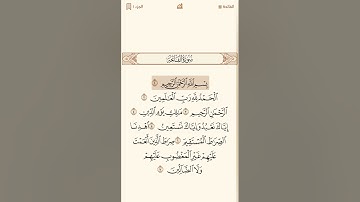 الفاتحة
الجزء ١
سُورَةُ الفَاتِحَةِ
بِسْمِ ٱللَّهِ ٱلرَّحْمَٰنِ ٱلرَّحِيمِ ۝١
ٱلْحَمْدُ لِلَّهِ رَبِّ ٱلْعَٰلَمِينَ ۝٢
ٱلرَّحْمَٰنِ ٱلرَّحِيمِ ۝٣ مَٰلِكِ يَوْمِ ٱلدِّينِ ۝٤
إِيَّاكَ نَعْبُدُ وَإِيَّاكَ نَسْتَعِينُ ۝٥ ٱهْدِنَا
ٱلصِّرَٰطَ ٱلْمُسْتَقِيمَ ۝٦ صِرَٰطَ ٱلَّذِينَ أَنْعَمْتَ
عَلَيْهِمْ غَيْرِ ٱلْمَغْضُوبِ عَلَيْهِمْ
وَلَا ٱلضَّآلِّينَ ۝٧